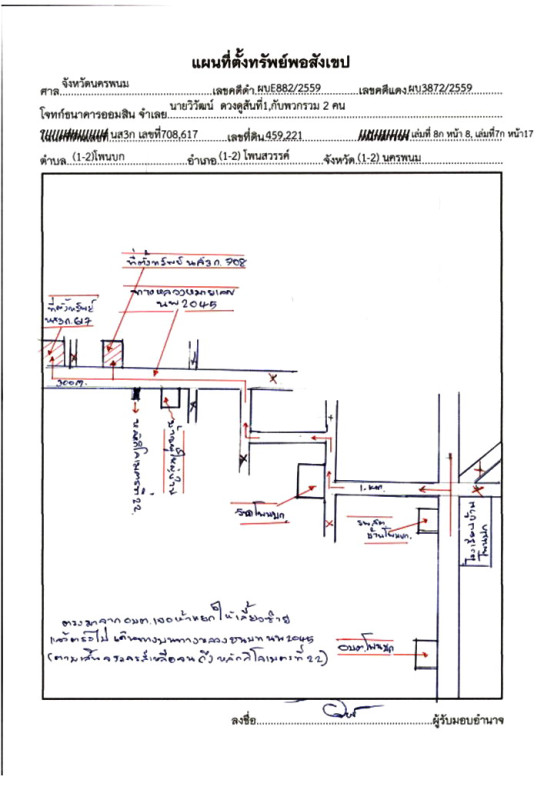 แผนที่ตั้งทรัพย์พอสังเขป
ศาล จังหวัดนครพนม เลขคดีดำ ผบE882/2559 เลขคดีแดง ผบ3872/2559
โจทก์ธนาคารออมสิน จำเลย นายวิวัฒน์ ดวงดูสันที่1,กับพวกรวม 2 คน
นส3ก เลขที่708,617 เลขที่ดิน 459,221 เล่มที่ 8ก หน้า 8, เล่มที่7ก หน้า17
ตำบล (1-2)โพนบก อำเภอ (1-2) โพนสวรรค์ จังหวัด (1-2) นครพนม
ที่ตั้งทรัพย์ นส3ก. 708
ทางหลวงหมายเลข
นพ 2045
ที่ตั้งทรัพย์
นส3ก. 617
300 ม.
หลักกิโลเมตรที่ 22.
บ้านผู้ใหญ่บ้าน
วัดโพนบก
1. กม.
รพ.สต
บ้านโพนบก
โพนบก
อบต.โพนบก
ตรงมาจาก อบต. เจอห้าแยกให้เลี้ยวซ้าย
นพ 2045
หลักกิโลเมตรที่ 22)
ลงชื่อ ผู้รับมอบอำนาจ